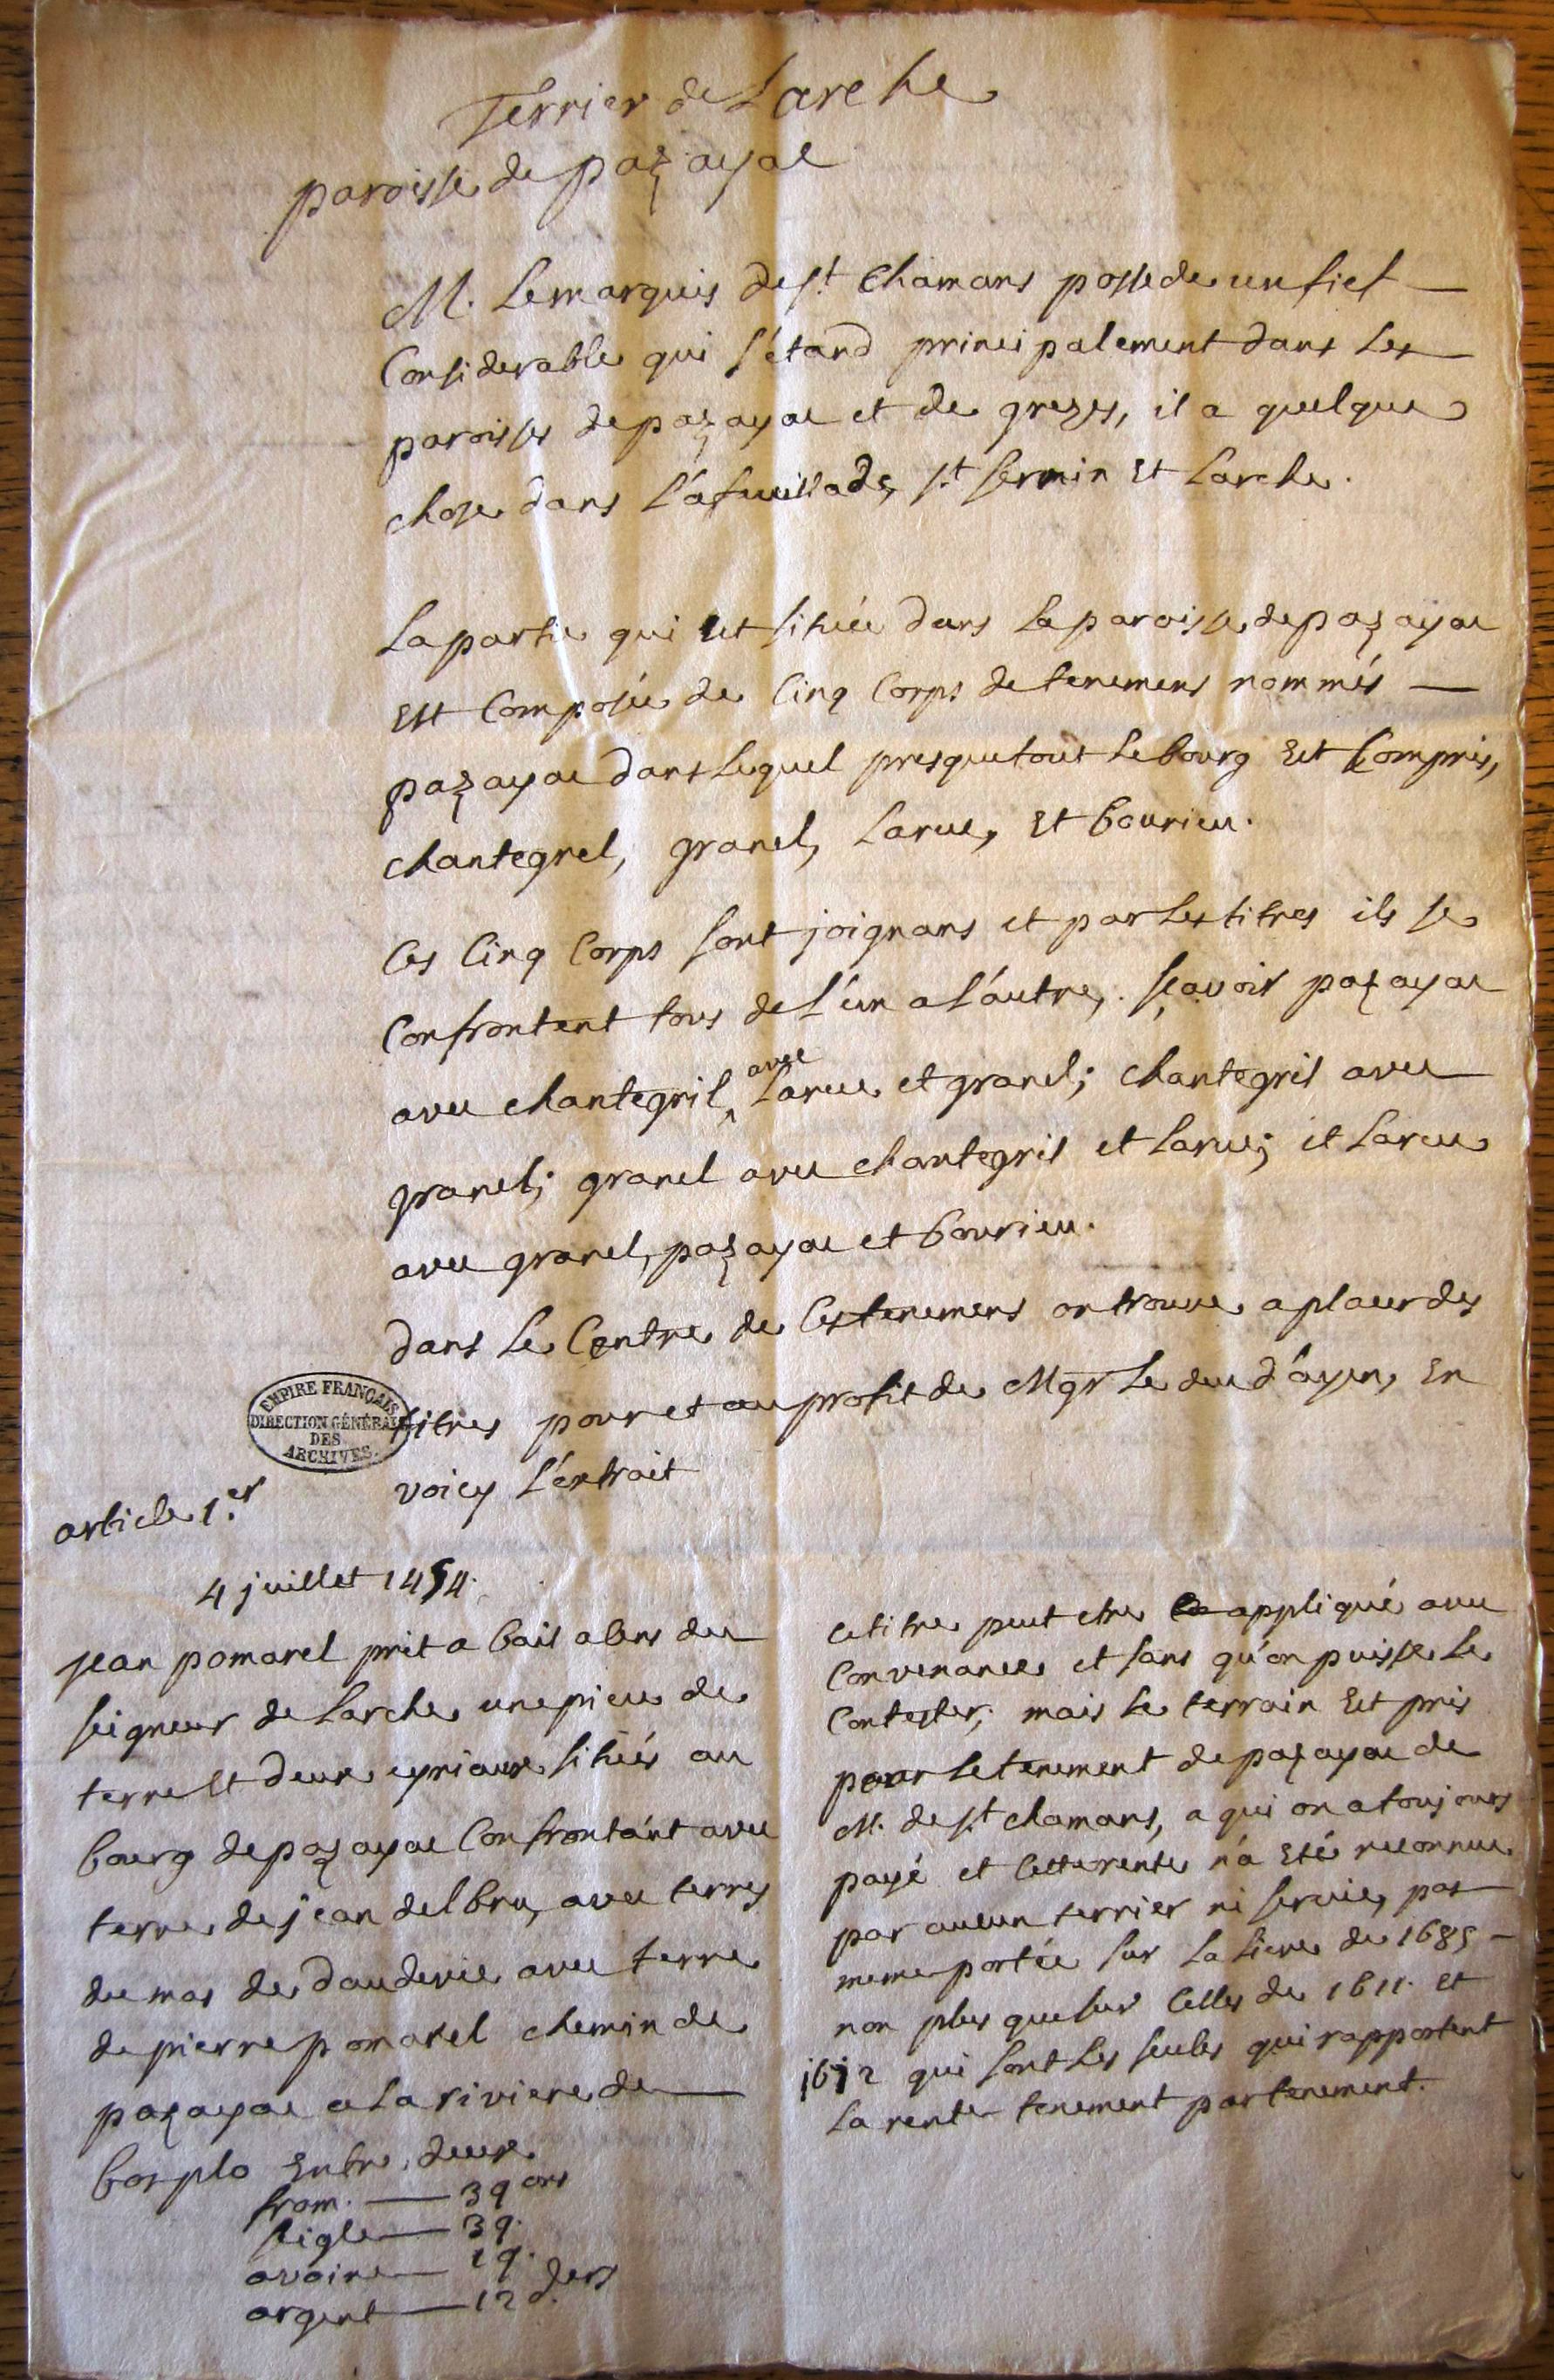 Terrier de Larche
paroisse de pazayac
M. Lemarquis de st Chamans possede un fief
Considerable qui s'étand principalement dans les
paroisses de pazayac et de grezes, il a quelque
chose dans l'áfeuillade, st sernin Et Larche.
La partie qui Est située dans La paroisse de pazayac
Est Composée de Cinq Corps de tenemens nommés
pazayac dans Lequel presque tout Le bourg Est Compris,
chantegrel, granel, Larue, Et bourieu.
Ces Cinq Corps sont joignans et par Les titres ils se
Confrontent tous de L'un a L'áutre, sçavoir pazayac
avec chantegril, avec Larue et granel; chantegril avec
granel; granel avec chantegril et Larue; et Larue
avec granel, pazayac et bourieu.
dans Le Centre de Ces tenemens on trouve a placer des
titres pour et au profit de Mgr Le duc d'áyen, En
voicy L'extrait
EMPIRE FRANÇAIS
DIRECTION GÉNÉRALE
DES
ARCHIVES.
article 1.er
4 juillet 1454.
jean pomarel prit a bail a Cens du
seigneur de Larche une piece de
terre Et deux eyriaux situés au
bourg de pazayac Confrontant avec
terre de jean delbru, avec terres
du mas de dauderie avec terre
de pierre pomarel chemin de
pazayac a La riviere de
bosplo Entre deux
from. — 3 q ons
seigle — 3 q.
avoine — 1 q.
argent — 12 ders
Ce titre peut etre appliqué avec
Convenance et sans qu'on puisse Le
Contester; mais Le terrain Est pris
pour Le tenement de pazayac de
M. de st chamans, a qui on a toujours
payé et Cette rente n'á Eté reconnue
par aucun terrier ni servie, pas
meme portée sur La Lieve de 1685
non plus que sur Celles de 1611. Et
1612 qui sont Les seules qui rapportent
La rente tenement par tenement.